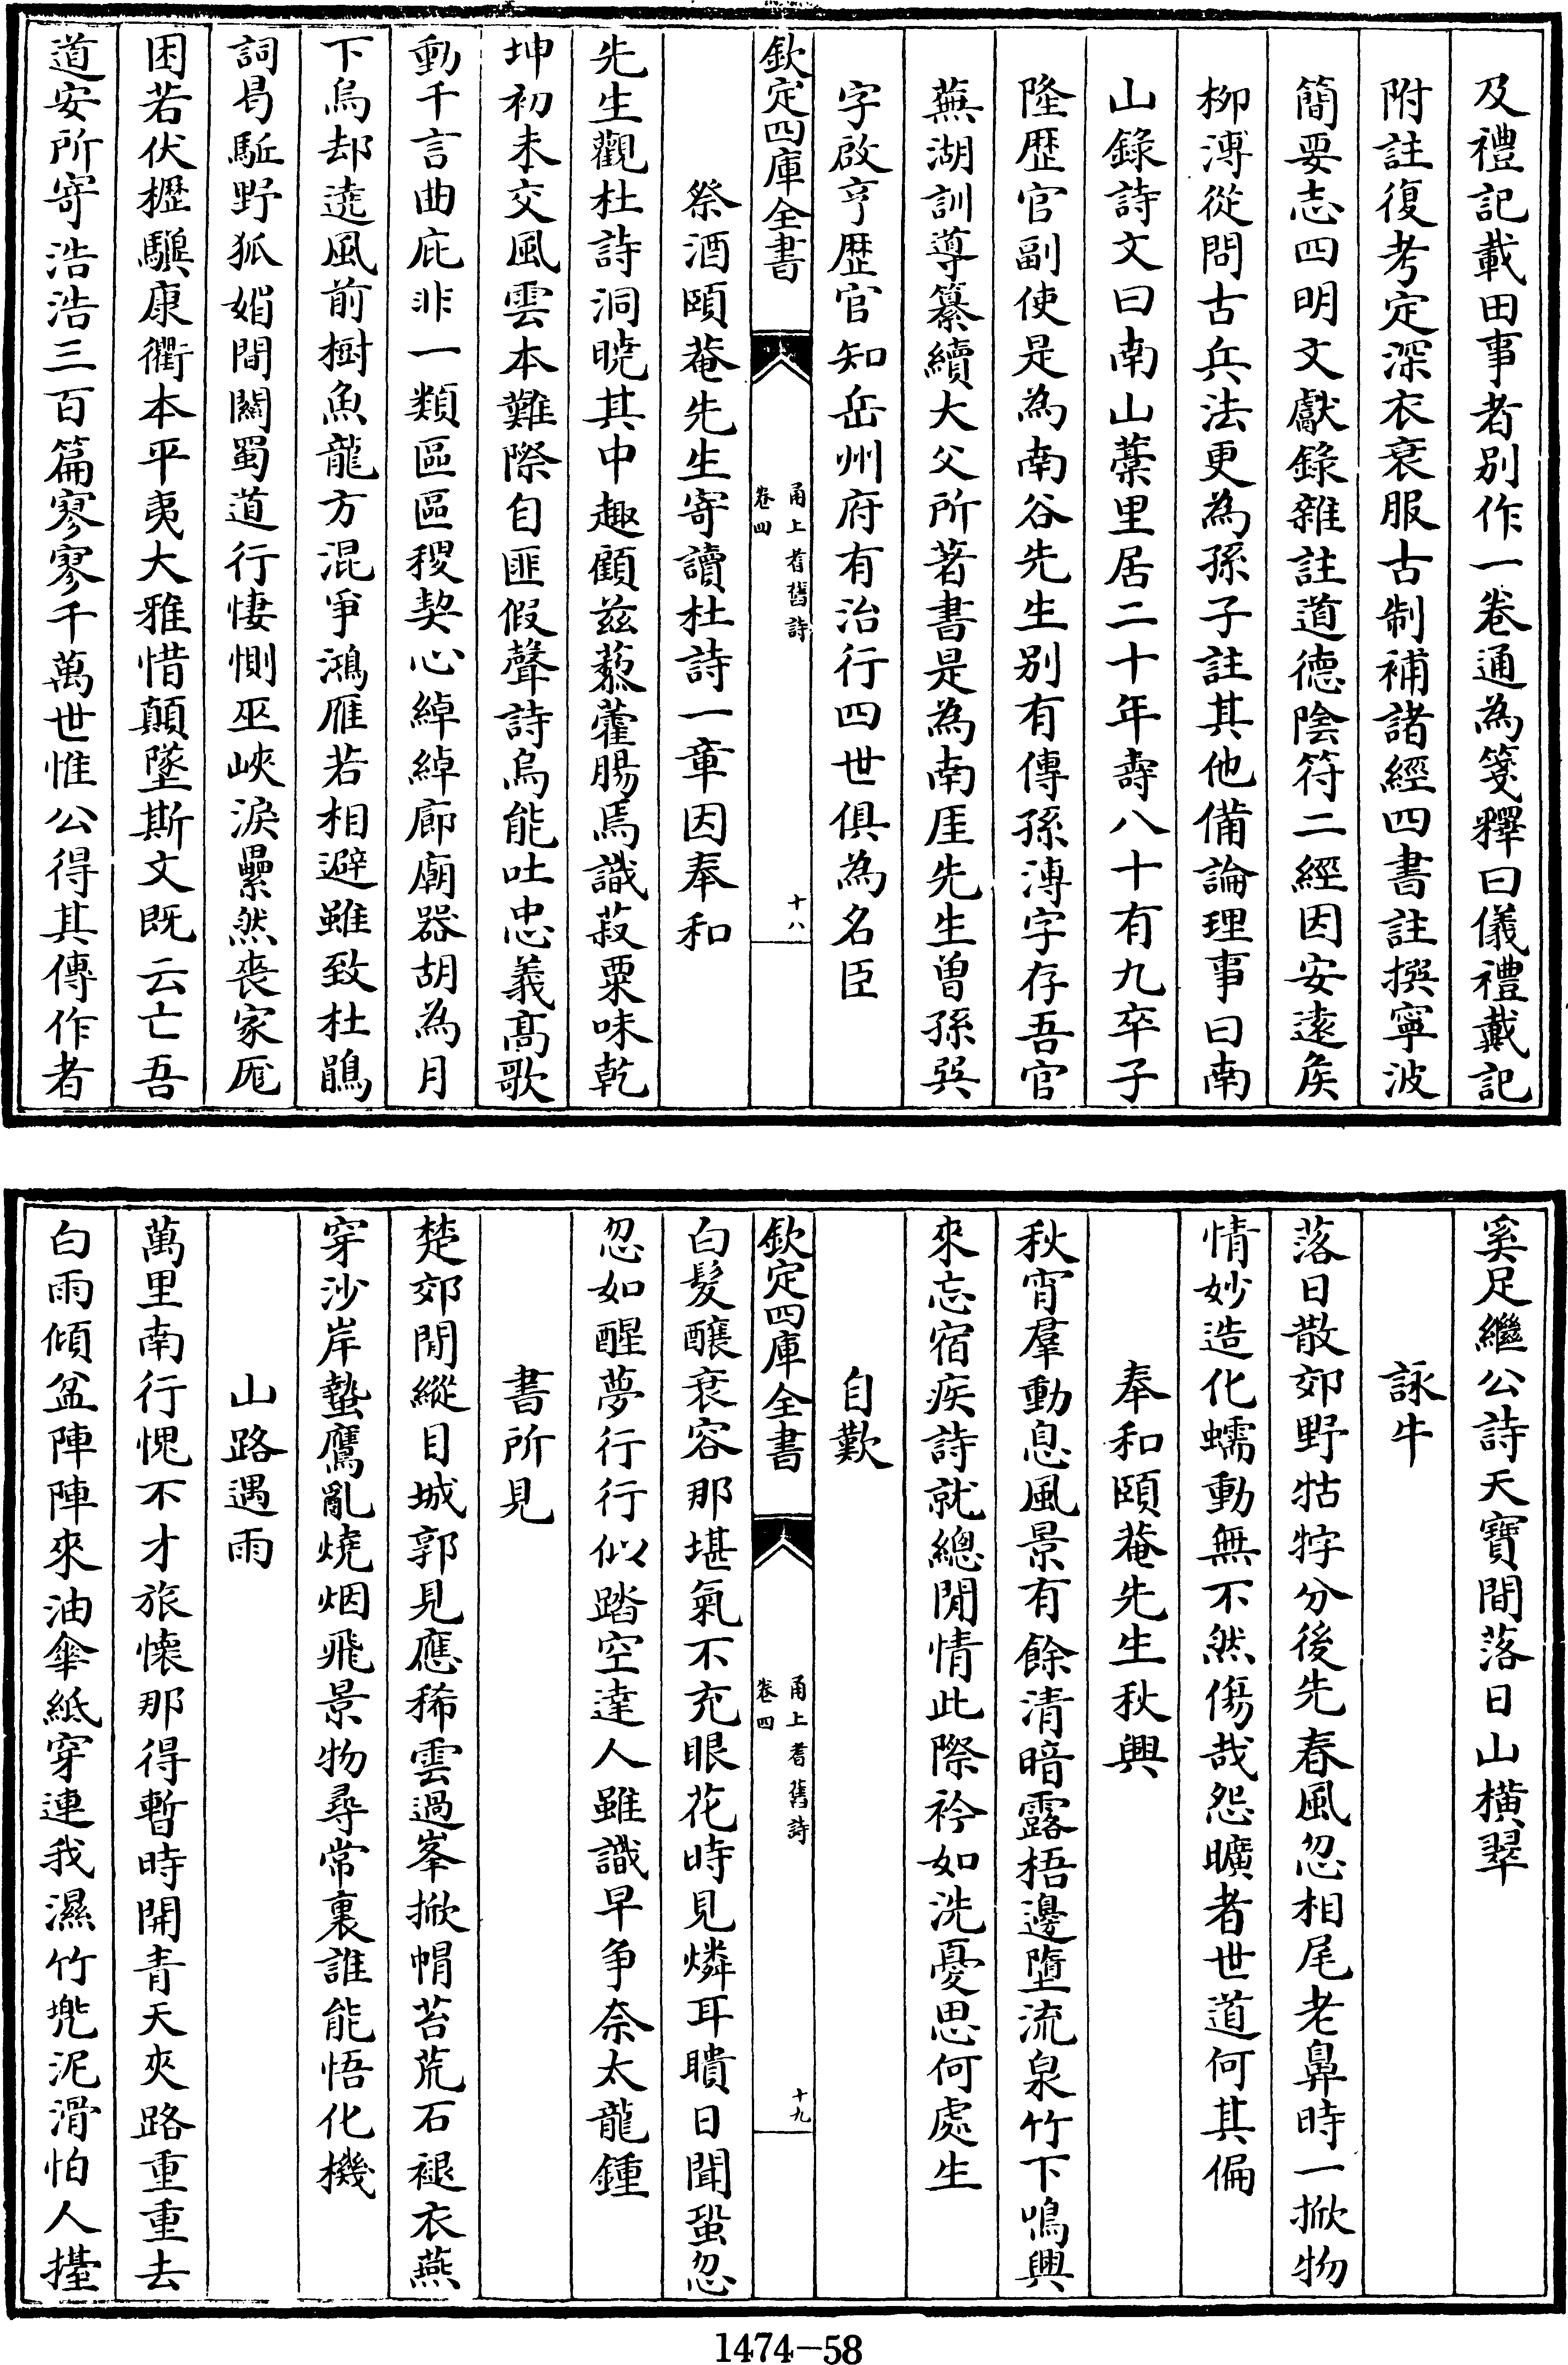 及禮記載田事者别作一卷通為箋釋曰儀禮戴記
附註復考定深衣衰服古制補諸經四書註撰寧波
簡要志四明文獻錄雜註道德陰符二經因安遠矦
柳溥從問古兵法更為孫子註其他備論理事曰南
山錄詩文曰南山藁里居二十年壽八十有九卒子
隆歴官副使是為南谷先生别有傳孫溥字存吾官
蕪湖訓導纂續大父所著書是為南厓先生曽孫㢲
字啟亨歴官知岳州府有治行四世俱為名臣
欽定四庫全書
甬上耆舊詩
卷四
十八
祭酒頤菴先生寄讀杜詩一章因奉和
先生觀杜詩洞曉其中趣顧兹藜藿腸焉識菽粟味乾
坤初未交風雲本難際自匪假聲詩烏能吐忠義髙歌
動千言曲庇非一類區區稷契心綽綽廊廟器胡為月
下烏却遶風前樹魚龍方混爭鴻雁若相避雖致杜鵑
詞曷駈野狐媚間關蜀道行悽惻巫峽淚纍然喪家厖
困若伏櫪驥康衢本平夷大雅惜顛墜斯文既云亡吾
道安所寄浩浩三百篇寥寥千萬世惟公得其傳作者
奚足繼公詩天寶間落日山橫翠
詠牛
落日散郊野牯牸分後先春風忽相尾老鼻時一掀物
情妙造化蠕動無不然傷哉怨曠者世道何其偏
奉和頤菴先生秋興
秋宵羣動息風景有餘清暗露梧邊墮流泉竹下鳴興
來忘宿疾詩就總閒情此際衿如洗憂思何處生
自歎
欽定四庫全書
甬上耆舊詩
卷四
十九
白髮釀衰容那堪氣不充眼花時見燐耳瞶日聞蛩忽
忽如醒夢行行似踏空達人雖識早争奈太龍鍾
書所見
楚郊閒縱目城郭見應稀雲過峯掀帽苔荒石褪衣燕
穿沙岸蟄鷹亂燒烟飛景物尋常裏誰能悟化機
山路遇雨
萬里南行愧不才旅懷那得暫時開青天夾路重重去
白雨傾盆陣陣來油傘紙穿連我濕竹兠泥滑怕人擡
1474—58